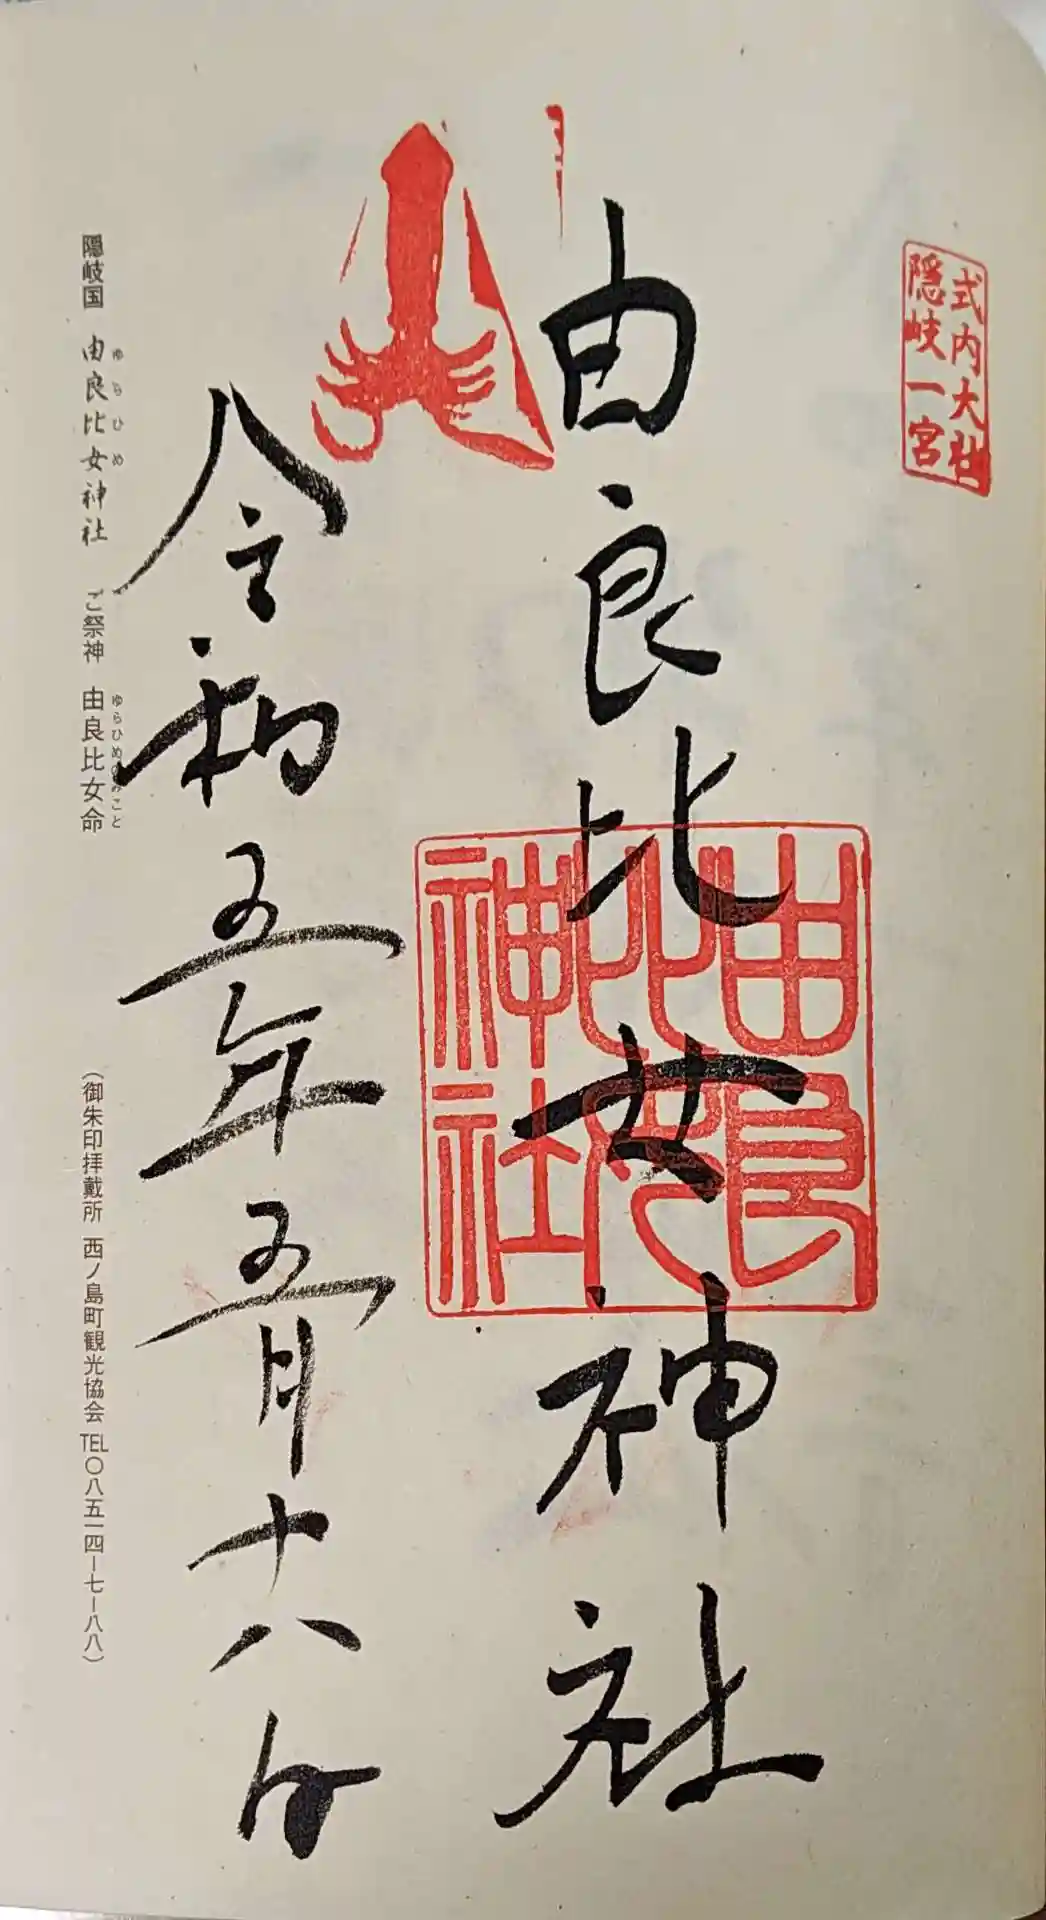 式内大社
隠岐一宮
由良比女神社
由良
比女
神社
令和五年五月十八日
隠岐国 由良比女神社 ご祭神 由良比女命
ゆらひめ
ゆらひめのみこと
(御朱印拝戴所 西ノ島町観光協会 TEL〇八五一四ー七ー八八)